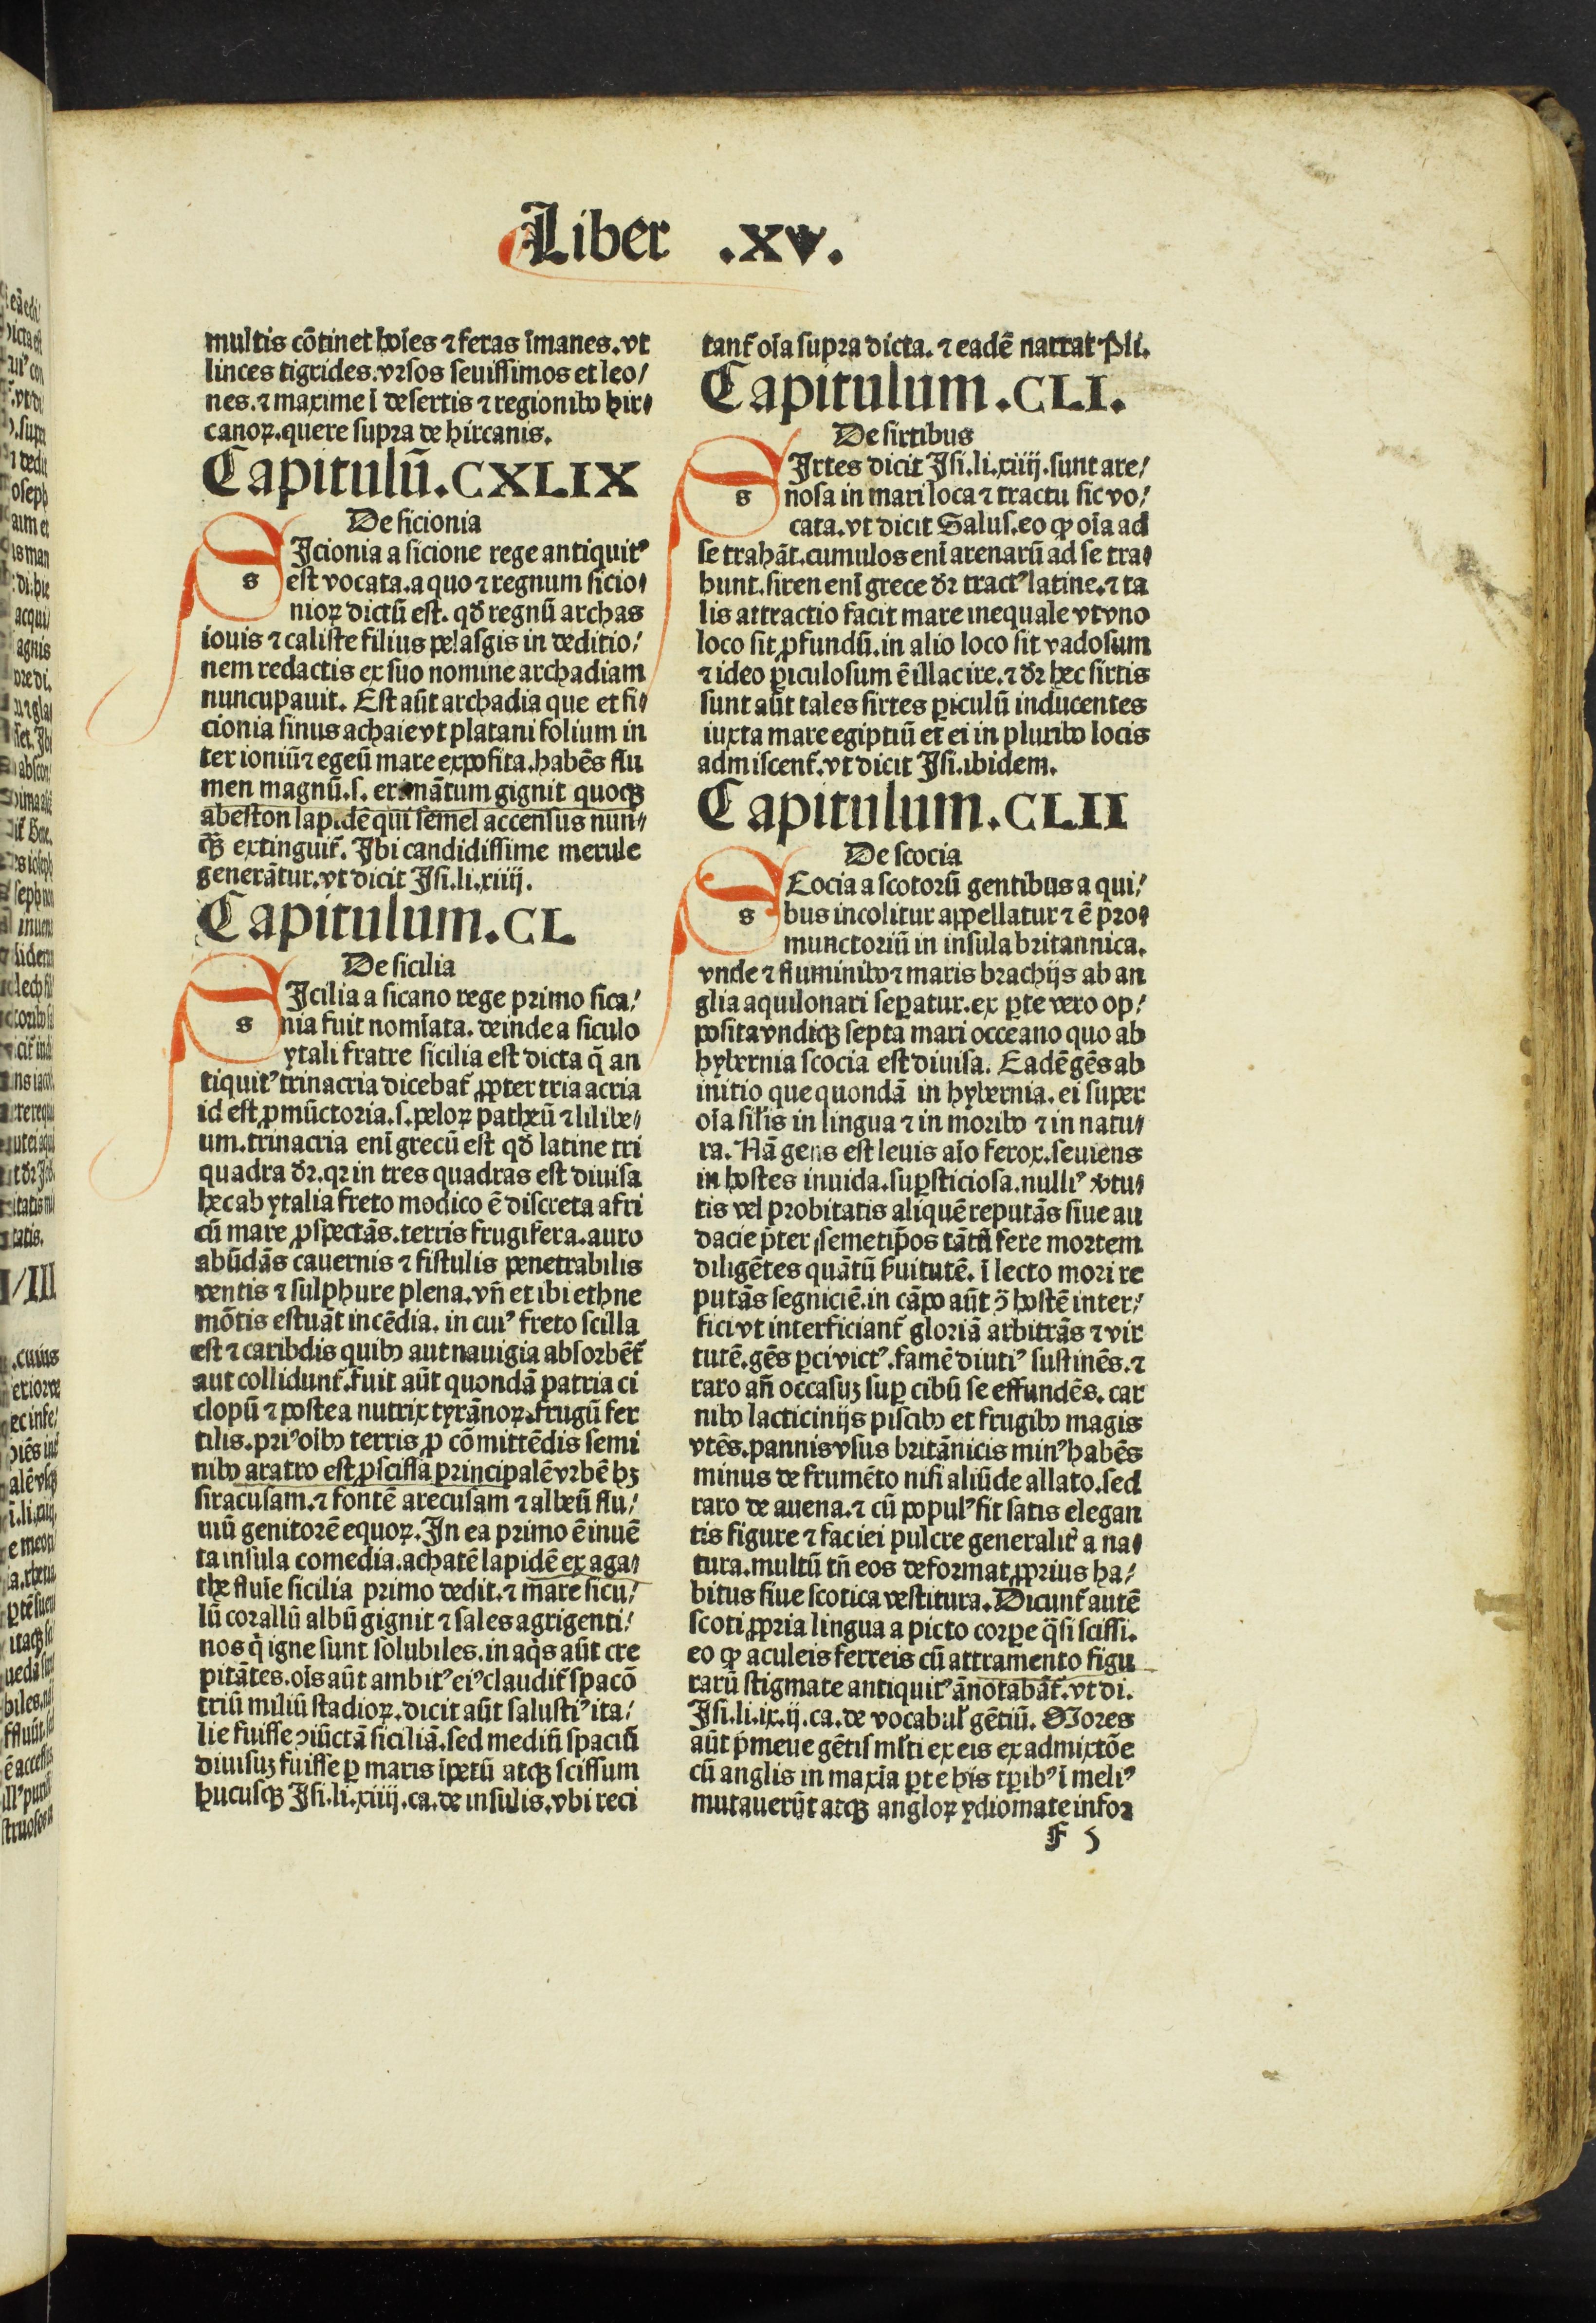 Liber .xv.
multis cōtinet hoīes ⁊ feras īmanes. vt
linces tigrides. vrsos seuissimos et leo/
nes. ⁊ maxime ī desertis ⁊ regionibꝰ hir/
canoꝝ. quere supra de hircanis.
Capitulū. CXLIX
De sicionia
sIcionia a sicione rege antiquitꝰ
est vocata. a quo ⁊ regnum sicio/
nioꝝ dictū est. qd̄ regnū archas
iouis ⁊ caliste filius pelasgis in deditio/
nem redactis ex suo nomine archadiam
nuncupauit. Est aūt archadia que et si/
cionia sinus achaie vt platani folium in
ter ioniū ⁊ egeū mare exposita. habēs flu
men magnū. s. erimātum gignit quoqꝫ
abeston lapidē qui semel accensus nun/
qꝫ extinguit̄. Ibi candidissime merule
generātur. vt dicit Isi. li. xiiij.
Capitulum. CL
De sicilia
sIcilia a sicano rege primo sica/
nia fuit nomīata. deinde a siculo
ytali fratre sicilia est dicta q̄ an
tiquitꝰ trinacria dicebat̄ ꝓpter tria acria
id est ꝓmūctoria. s. peloꝝ patheū ⁊ lilibe/
um. trinacria enī grecū est qd̄ latine tri
quadra dꝛ. qꝛ in tres quadras est diuisa
hec ab ytalia freto modico ē discreta afri
cū mare ꝓspectās. terris frugifera. auro
abūdās cauernis ⁊ fistulis penetrabilis
ventis ⁊ sulphure plena. vn̄ et ibi ethne
mōtis estuāt incēdia. in cuiꝰ freto scilla
est ⁊ caribdis quibꝰ aut nauigia absorbēt̄
aut collidunt̄. fuit aūt quondā patria ci
clopū ⁊ postea nutrix tyrānoꝝ. frugū fer
tilis. priꝰ oībꝰ terris ꝓ cōmittēdis semi
nibꝰ aratro est ꝓscissa principalē vrbē hꝫ
siracusam. ⁊ fontē arecusam ⁊ albeū flu/
uiū genitorē equoꝝ. In ea primo ē inuē
ta insula comedia. achatē lapidē ex aga/
the fluīe sicilia primo dedit. ⁊ mare sicu/
lū corallū albū gignit ⁊ sales agrigenti/
nos q̄ igne sunt solubiles. in aqs aūt cre
pitātes. oīs aūt ambitꝰ eiꝰ claudit̄ spacō
triū miliū stadioꝝ. dicit aūt salustiꝰ ita/
lie fuisse ꝯiūctā siciliā. sed mediū spaciū
diuisuꝫ fuisse ꝑ maris īpetū atqꝫ scissum
hucusqꝫ Isi. li. xiiij. ca. de insulis. vbi reci
tant̄ oīa supra dicta. ⁊ eadē narrat Pli.
Capitulum. CLI.
De sirtibus
sIrtes dicit Isi. li. xiiij. sunt are/
nosa in mari loca ⁊ tractu sic vo/
cata. vt dicit Salus. eo ꝙ oīa ad
se trahāt. cumulos enī arenarū ad se tra/
hunt. siren enī grece dꝛ tractꝰ latine. ⁊ ta
lis attractio facit mare inequale vt vno
loco sit ꝓfundū. in alio loco sit vadosum
⁊ ideo ꝑiculosum ē illac ire. ⁊ dꝛ hec sirtis
sunt aūt tales sirtes ꝑiculū inducentes
iuxta mare egiptiū et ei in pluribꝰ locis
admiscent̄. vt dicit Isi. ibidem.
Capitulum. CLII
De scocia
sCocia a scotorū gentibus a qui/
bus incolitur appellatur ⁊ ē pro/
munctoriū in insula britannica.
vnde ⁊ fluminibꝰ ⁊ maris brachijs ab an
glia aquilonari seꝑatur. ex ꝑte vero op/
posita vndiqꝫ septa mari occeano quo ab
hybernia scocia est diuisa. Eadē gēs ab
initio que quondā in hybernia. ei super
oīa sil̄is in lingua ⁊ in moribꝰ ⁊ in natu/
ra. Nā gens est leuis aīo ferox. seuiens
in hostes inuida. suꝑsticiosa. nulliꝰ v̄tu/
tis vel probitatis aliquē reputās siue au
dacie p̄ter semetip̄os tātū fere mortem
diligētes quātū ẜuitutē. ī lecto mori re
putās segniciē. in cāpo aūt ꝯ̄ hostē inter/
fici vt interficiant̄ gloriā arbitrās ⁊ vir
tutē. gēs ꝑci victꝰ. famē diutiꝰ sustinēs. ⁊
raro an̄ occasuꝫ suꝑ cibū se effundēs. car
nibꝰ lacticinijs piscibꝰ et frugibꝰ magis
vtēs. pannis vsus britānicis minꝰ habēs
minus de frumēto nisi aliūde allato. sed
raro de auena. ⁊ cū populꝰ sit satis elegan
tis figure ⁊ faciei pulcre generalit̄ a na/
tura. multū tn̄ eos deformat ꝓprius ha/
bitus siue scotica vestitura. Dicunt̄ autē
scoti ꝓpria lingua a picto corpe q̄si scissi.
eo ꝙ aculeis ferreis cū attramento figu
rarū stigmate antiquitꝰ ānotabāt̄. vt di.
Isi. li. ix. ij. ca. de vocabul̄ gētiū. Mores
aūt p̄meue gētis ml̄ti ex eis ex admixtōe
cū anglis in maxīa ꝑte his tꝑibꝰ ī meliꝰ
mutauerūt atqꝫ angloꝝ ydiomate infor
F 5